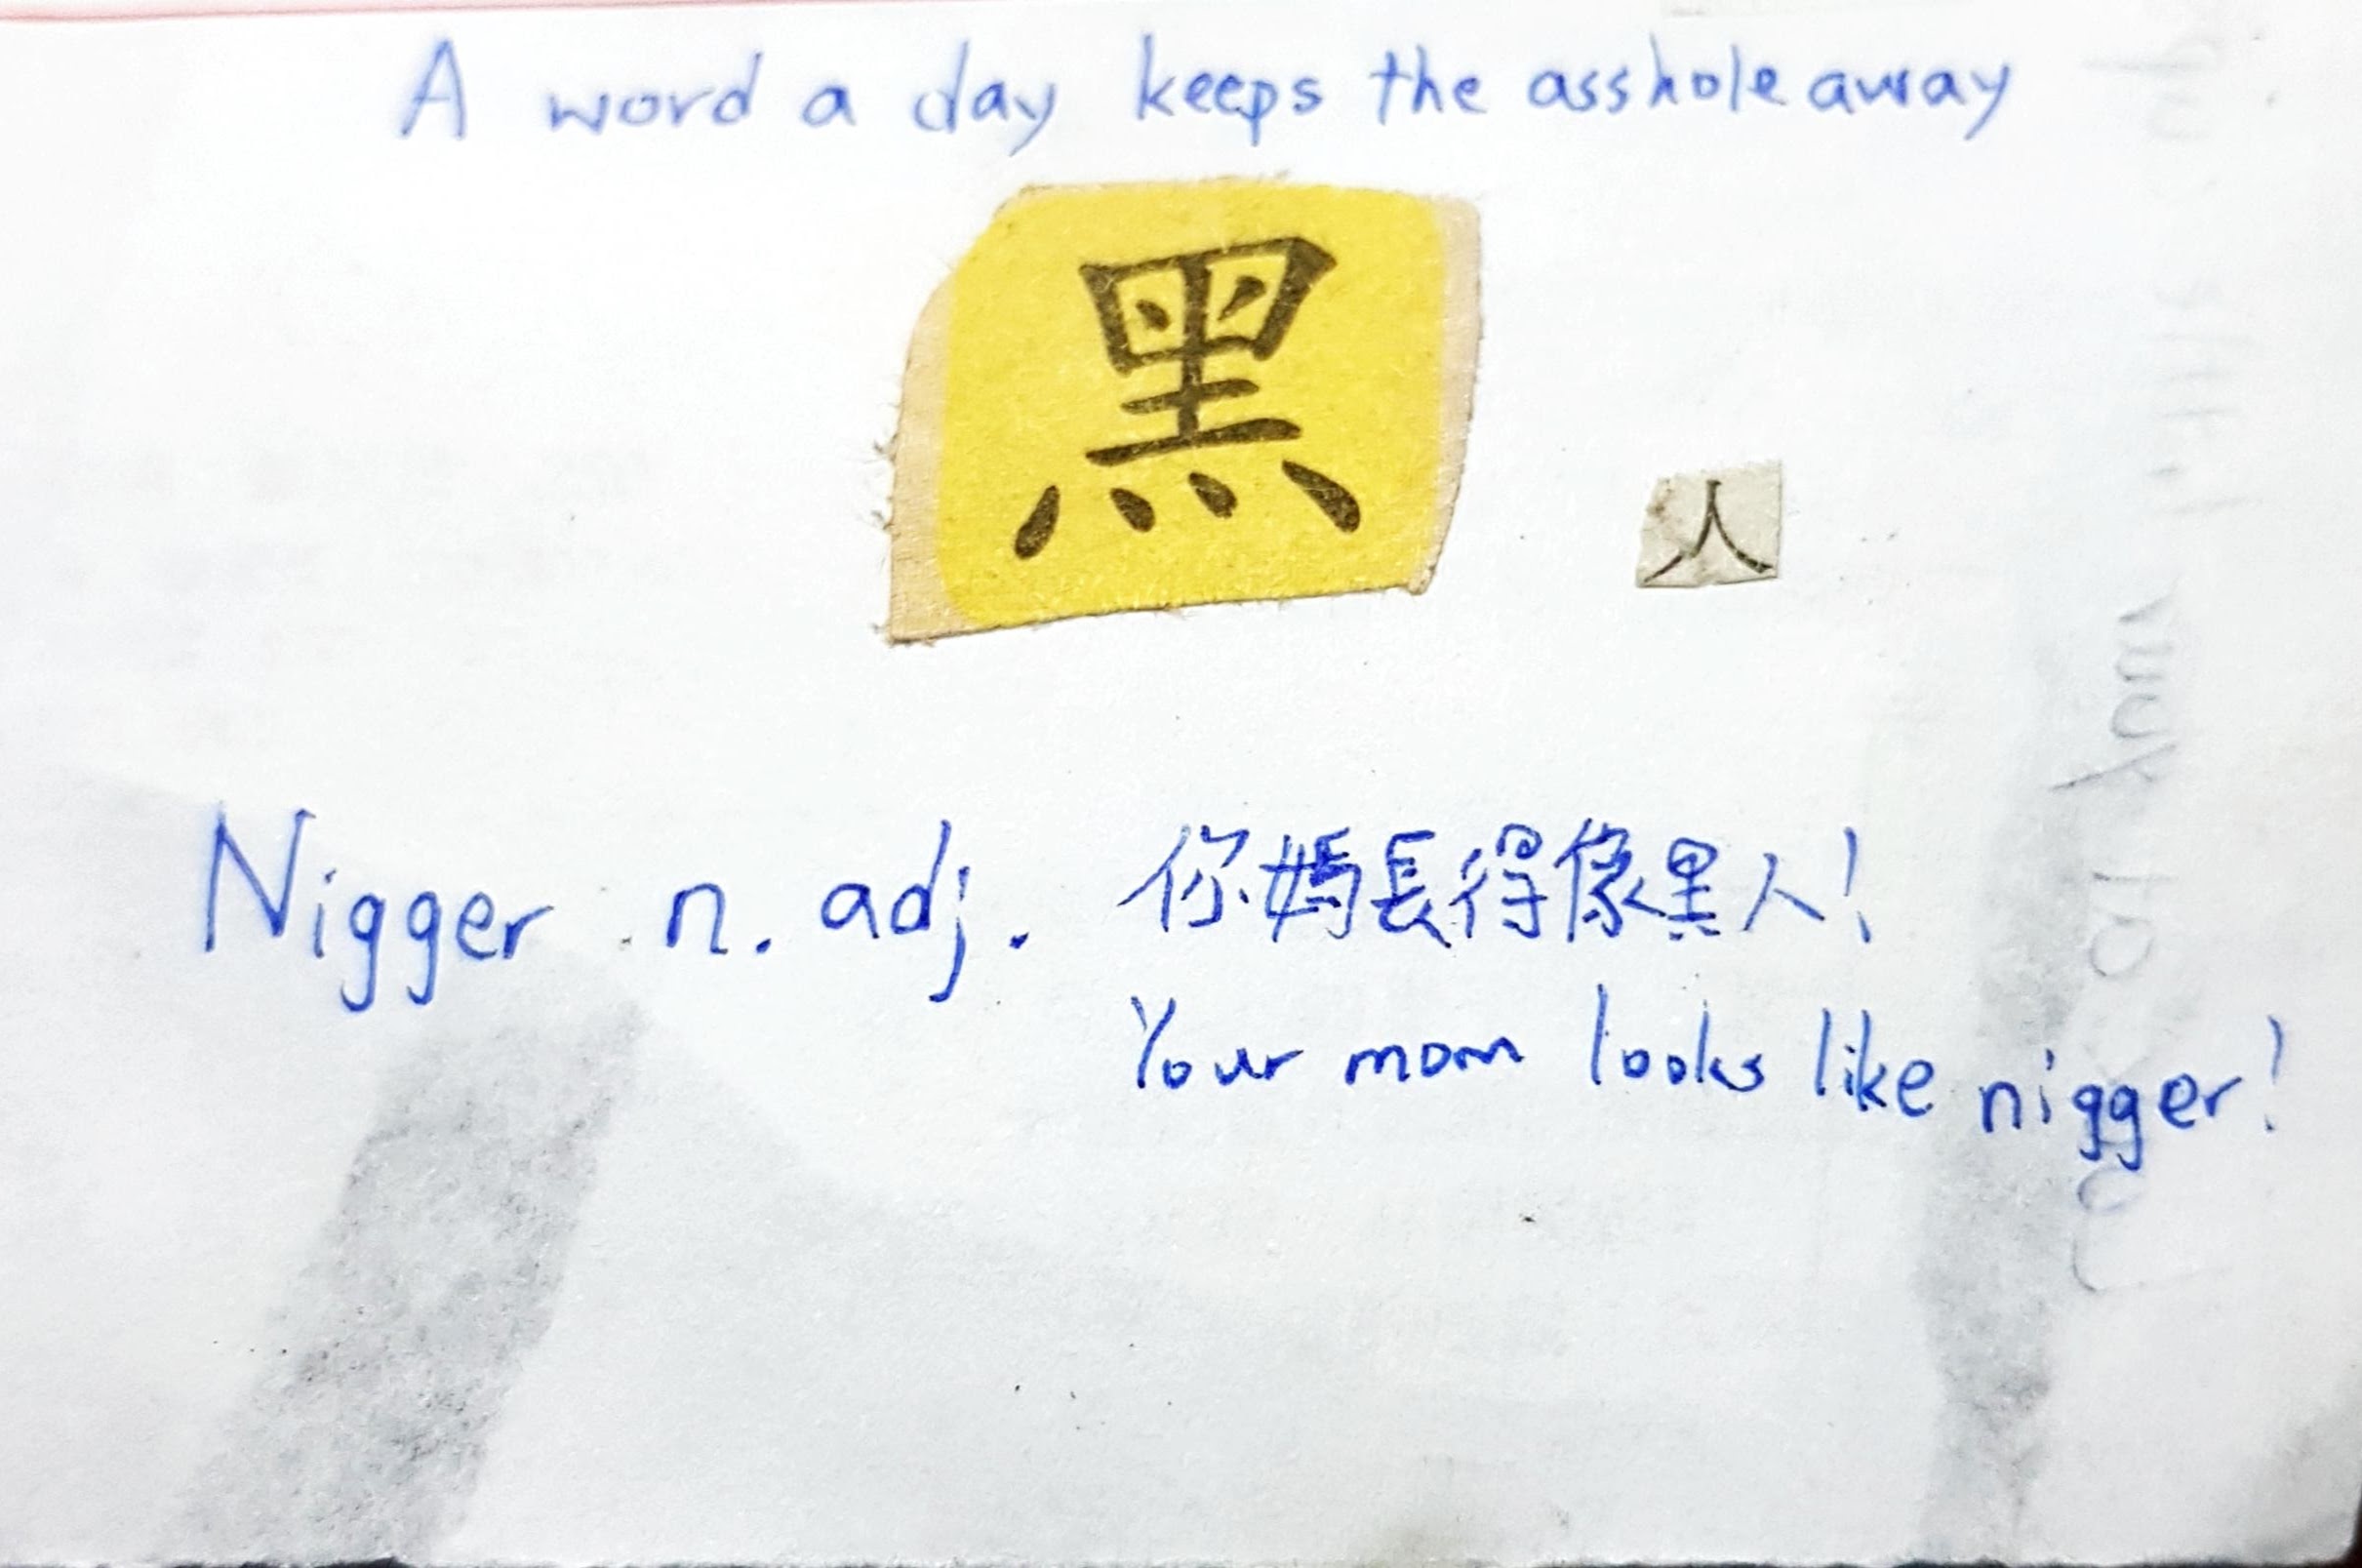 A word a day keeps the asshole away
黑 人
Nigger n. adj. 你媽長得像黑人!
Your mom looks like nigger!